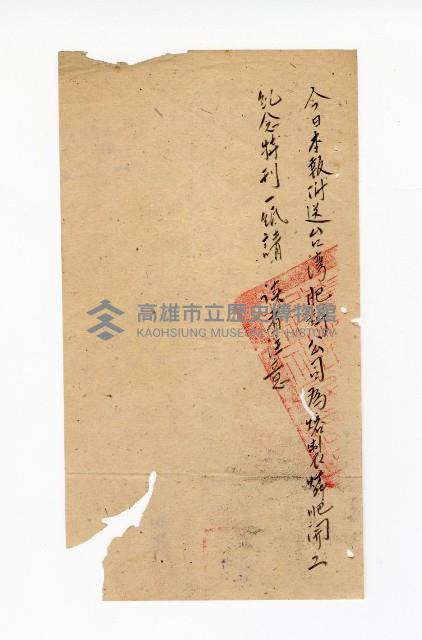 今日本報附送台湾肥料公司為熔製燐肥開工
紀念特刊一紙請 读者注意
高雄市立歷史博物館
KAOHSIUNG MUSEUM OF HISTORY